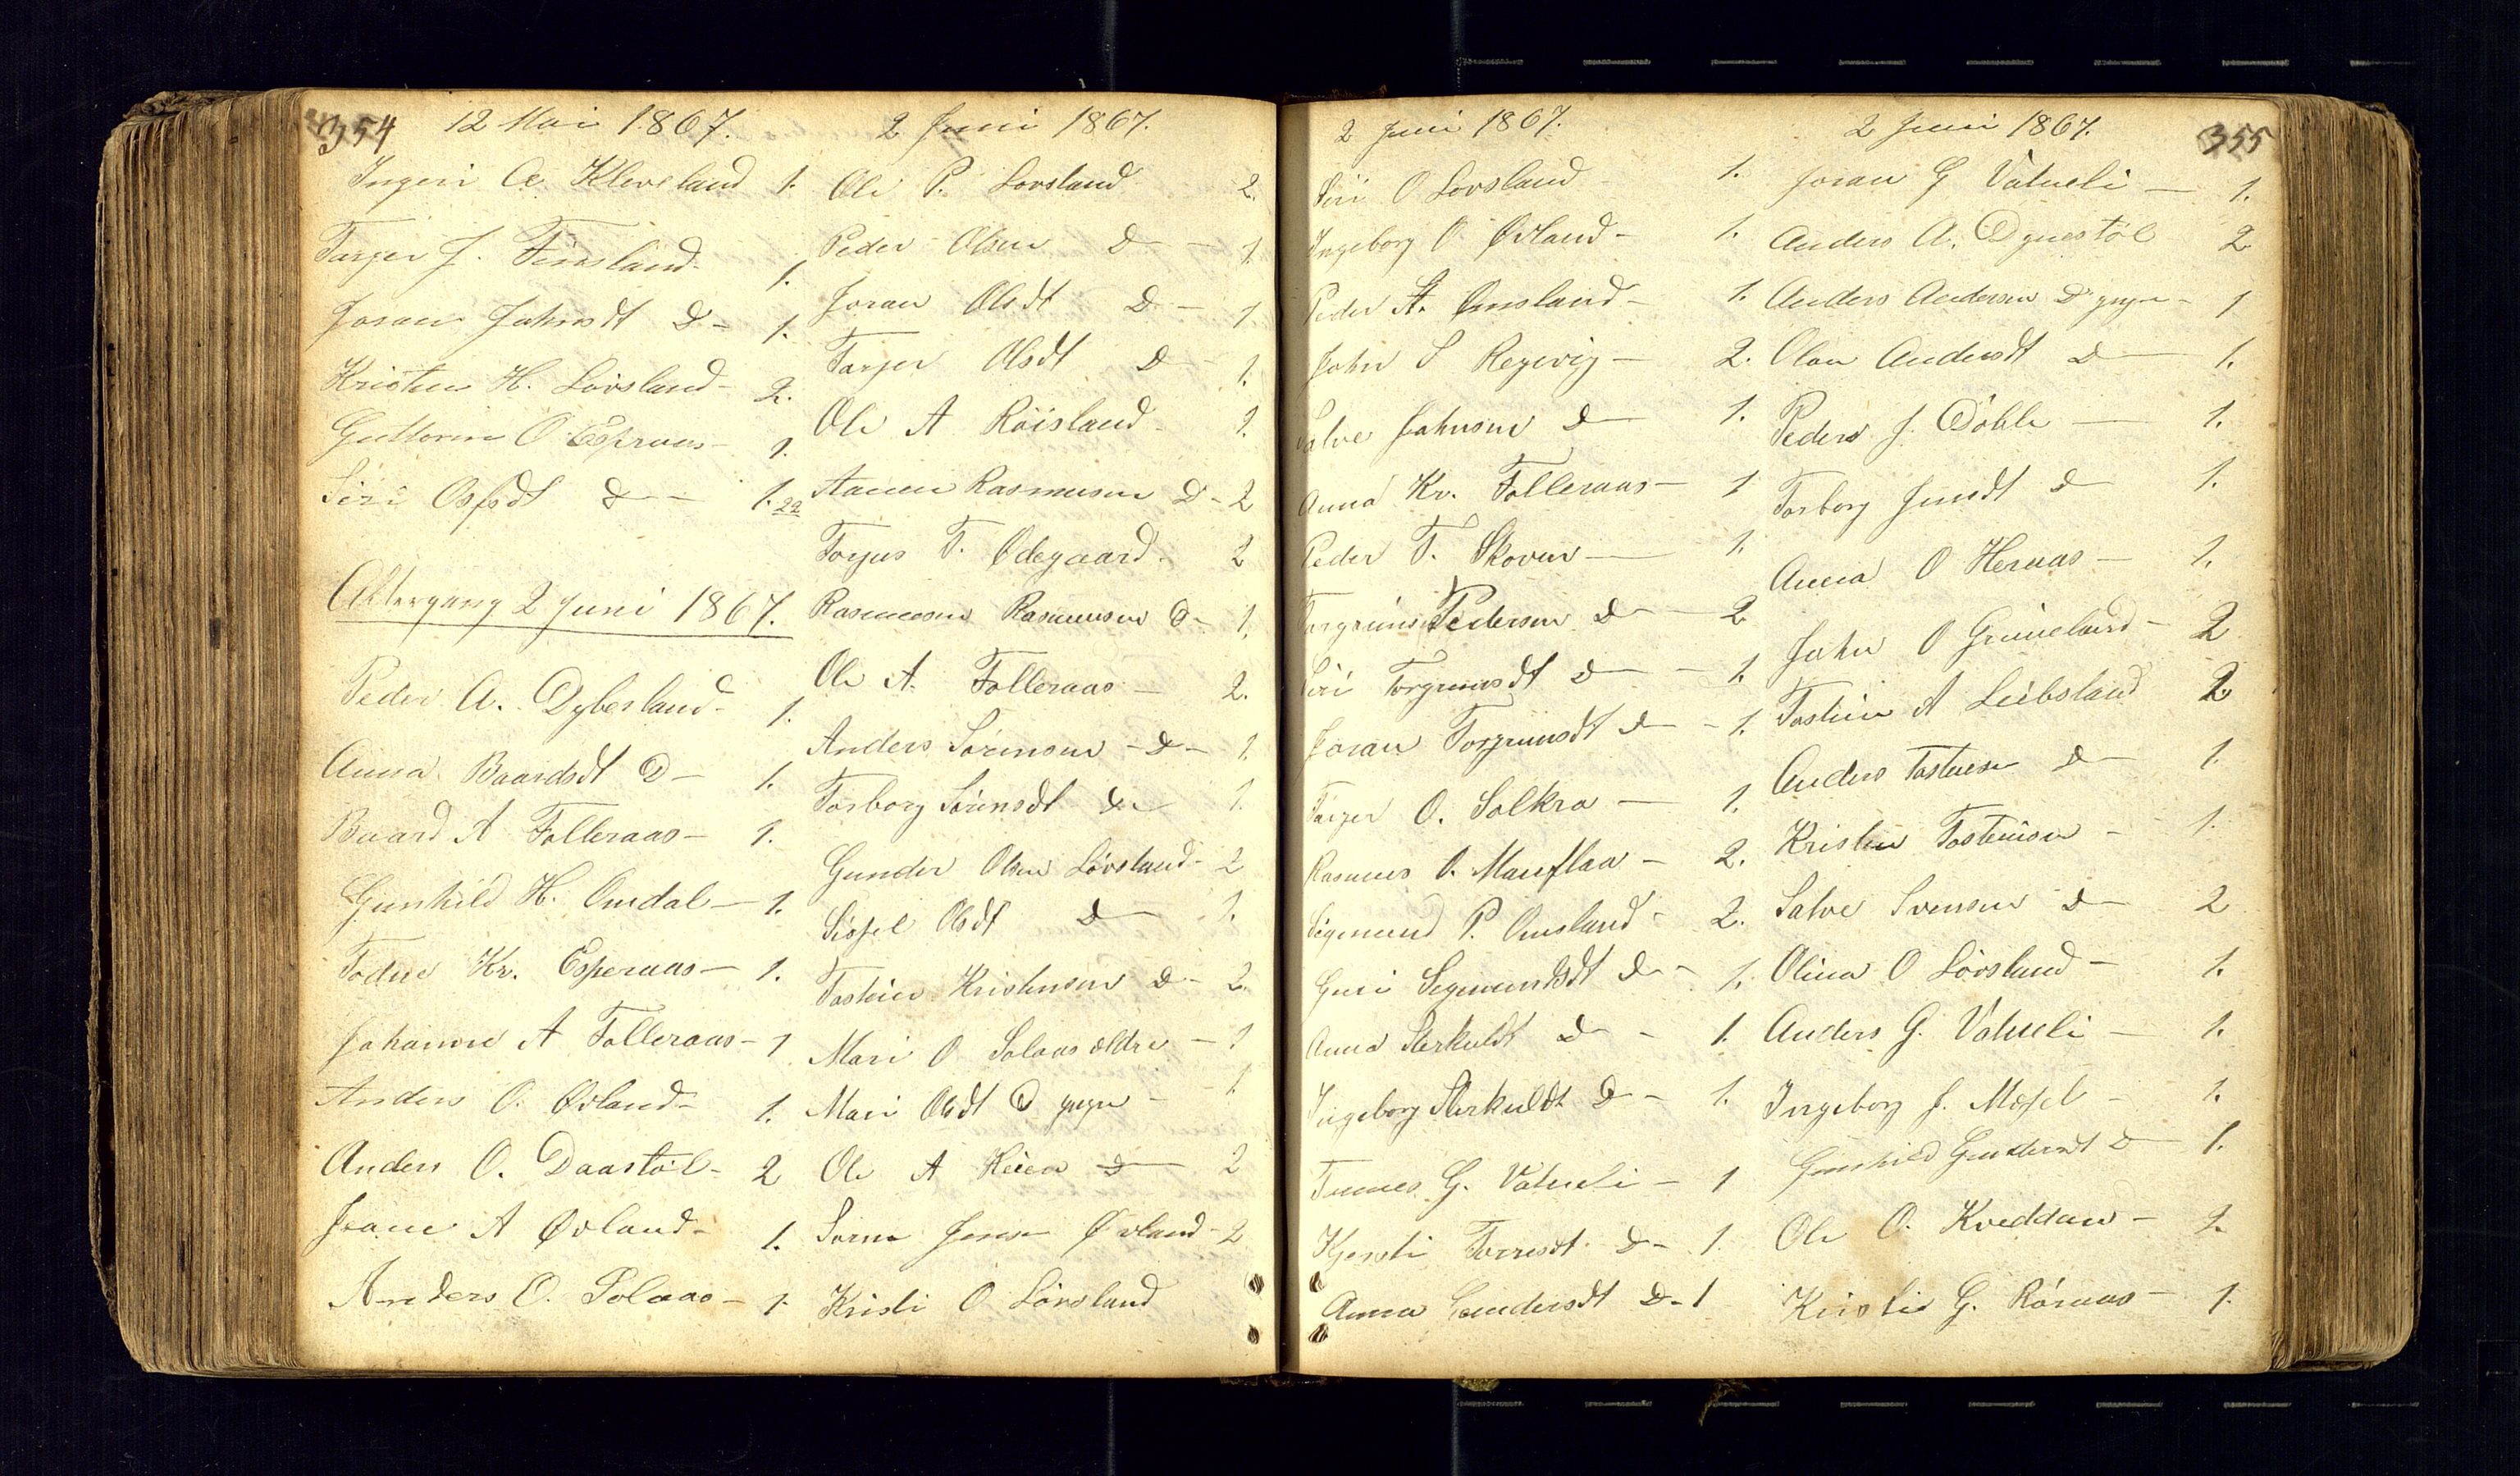 354 12 Mai 1867.
Ingeri A. Kleveland 1.
Targer J. Finsland 1.
Joran Johnsdt D - 1.
Kristen H. Lovsland - 2.
Guttorm O Esperaas - 1.
Siri Osfsdt D - 1. 22
Altergang 2 Juni 1867.
Peder A. Dybesland - 1.
Anna Baardsdt D - 1.
Baard A Folleraas - 1.
Gunhild H. Omdal - 1.
Todne Kr. Esperaas - 1.
Johanne A Folleraas - 1
Anders O. Øvland - 1.
Anders O. Daastöl - 2
Joane A Øvland - 1.
Anders O. Solaas - 1.
2 Juni 1867.
Ole P. Lovsland 2.
Peder Olsen D - 1.
Joran Olsdt D - 1
Targer Olsdt D - 1.
Ole A Röisland - 1.
Aanen Rasmusen D - 2
Torjus T. Ødegaard - 2
Rasmusen D - 1.
Ole A. Folleraas - 2.
Anders Sörensen - D - 1.
Torborg Sörensdt D - 1.
Gunder Olsen Lövsland - 2
Sissel Olsdt D - 1.
Tostein Kristensen D - 2.
Mari O Solaas ældre - 1
Mari Olsdt D yngre - 1.
Ole A Heien D - 2
Søren Jensen Øvland - 2
Kristi O Lövsland
2 Juni 1867.
Siri O Lovsland 1.
Ingeborg O Øvland - 1.
Peder A. Omsland - 1.
John S Regevig - 2.
Salve Johnsen D - 1.
Anna Kr. Folleraas - 1
Peder T. Skoven - 1.
Torgrim Pedersen D - 2
Siri Torgrimsdt D - 1.
Joran Torgrimsdt D - 1.
Targer O. Solkra - 1.
Rasmus O. Mauflaa - 2.
Sigmund P. Omsland - 2.
Guri Segmundsdt D - 1.
Anna Sterkuldt D - 1.
Ingeborg Sterkuldt D - 1.
Tomes G. Vatneli - 1
Kjersti Torresdt D - 1.
Anna Gundersdt D - 1
2 Juni 1867. 355
Joran G Vatneli - 1.
Anders A. Dynestöl 2
Anders Andersen D yngre - 1
Olau Andersdt D - 1.
Peder J. Döble - 1.
Torborg Jensdt D 1.
Anna O Heraas - 1.
John O Grimeland - 2
Tostein A Leibsland 2
Anders Tostensen D - 1.
Kristen Tosteinsen - 1.
Salve Svensen D - 2
Olina O Lövsland - 1.
Anders G. Vatneli - 1.
Ingeborg J. Mosjel - 1.
Gunhild Gundersdt D - 1.
Ole O. Kveddan - 2.
Kristi G. Röraas - 1.